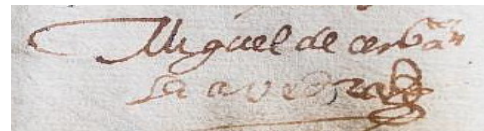 Miguel de cerbãts
saavedra